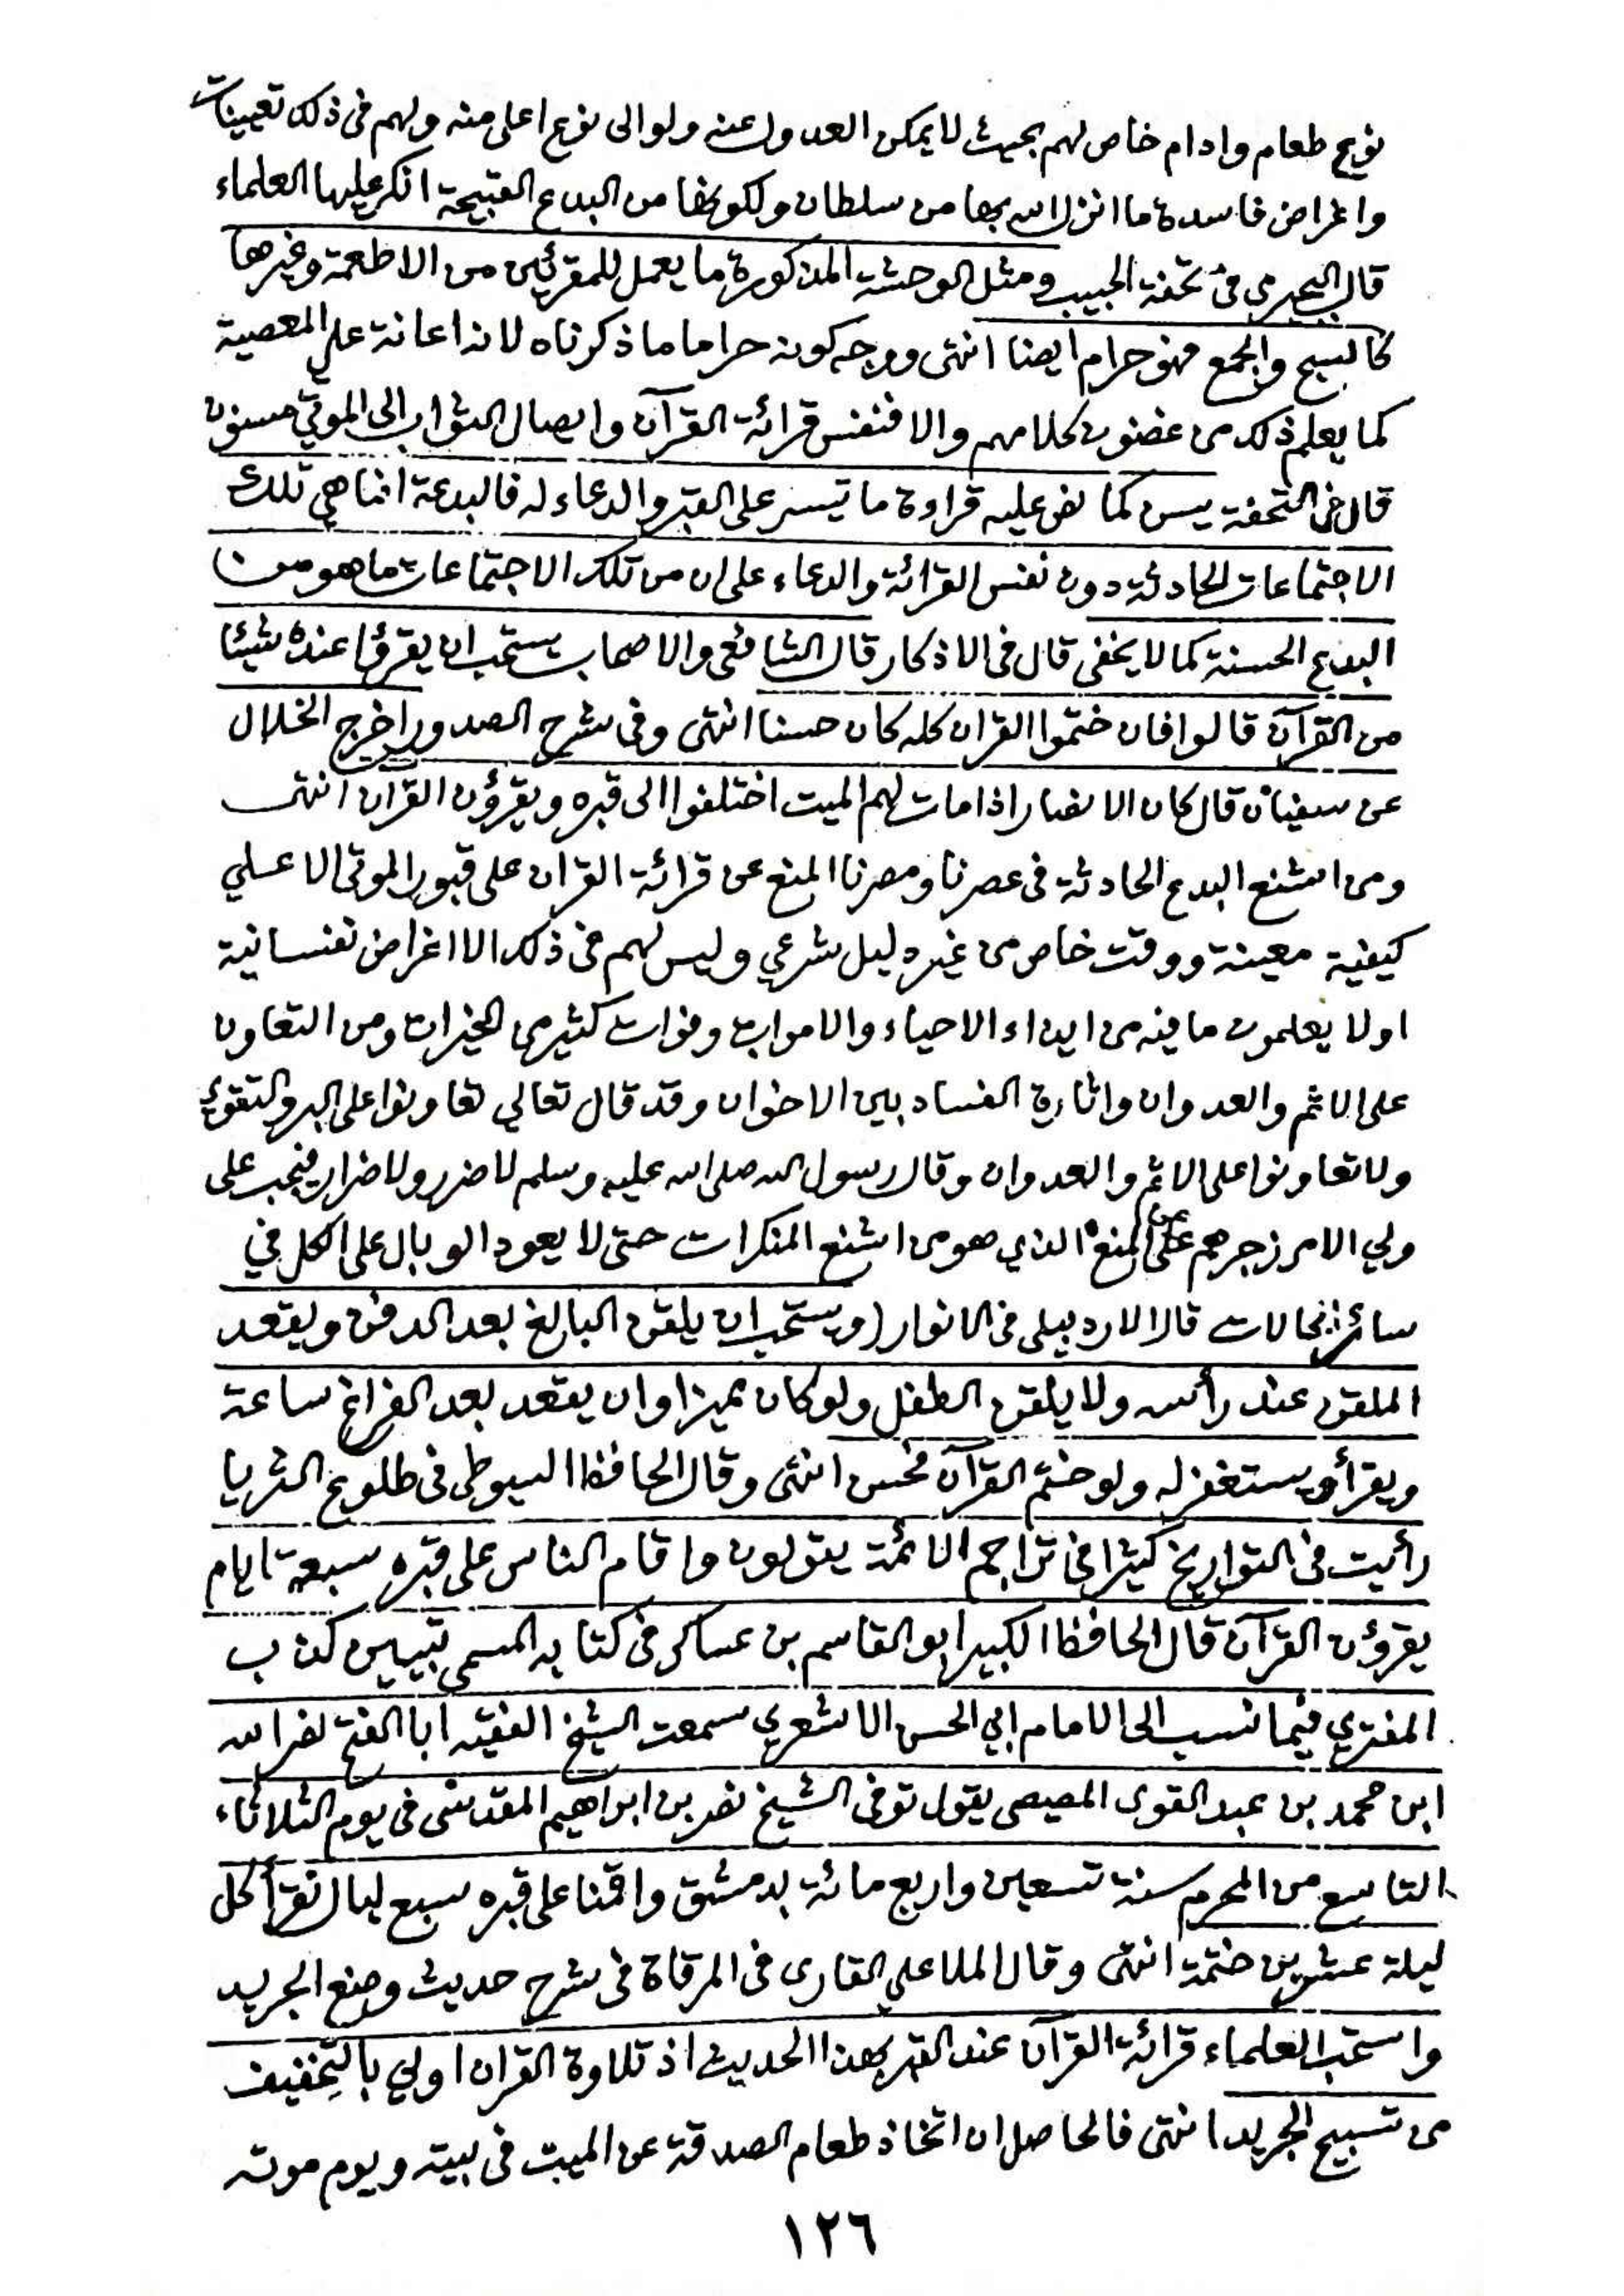 نوع طعام وادام خاص لهم بحيث لا يمكن العدول عنه ولو الى نوع اعلى منه ولهم فى ذلك تعيينات
واغراض فاسدة ما انزل الله بها من سلطان ولكونها من البدع القبيحة انكر عليها العلماء
قال البجيرمى فى تحفة الحبيب ومثل الوحشة المذكورة ما يعمل للمقرئين من الاطعمة وغيرها
كالسبح والجمع فهو حرام ايضا انتهى ووجه كونه حراما ما ذكرناه لانه اعانة على المعصية
كما يعلم ذلك من غضون كلامهم والا فنفس قرائة القرآن وايصال الثواب الى الموتى مسنون
قال فى التحفة يسن كما نص عليه قراءة ما تيسر على القبر والدعاء له فالبدعة انما هي تلك
الاجتماعات الحادثة دون نفس القرائة والدعاء على ان من تلك الاجتماعات ما هو من
البدع الحسنة كما لا يخفى قال فى الاذكار قال الشافعى والاصحاب يستحب ان يقرؤا عنده شيئا
من القرآن قالوا فان ختموا القران كله كان حسنا انتهى وفى شرح الصدور اخرج الخلال
عن سفيان قال كان الانصار اذا مات لهم الميت اختلفوا الى قبره ويقرؤن القرآن انتهى
ومن اشنع البدع الحادثة فى عصرنا ومصرنا المنع عن قرائة القران على قبور الموتى الا على
كيفية معينة ووقت خاص من غير دليل شرعي وليس لهم فى ذلك الا اغراض نفسانية
اولا يعلمون ما فيه من ايذاء الاحياء والاموات وفوات كثير من الخيرات ومن التعاون
على الاثم والعدوان واثارة الفساد بين الاخوان وقد قال تعالى تعاونوا على البر والتقوى
ولا تعاونوا على الاثم والعدوان وقال رسول الله صلى الله عليه وسلم لا ضرر ولا ضرار فيجب على
ولي الامر زجرهم على عن المنع الذي هو من اشنع المنكرات حتى لا يعود الوبال على الكل في
سائر الحالات قال الاردبيلى فى الانوار (ويستحب ان يلقن البالغ بعد الدفن ويقعد
الملقن عند رأسه ولا يلقن الطفل ولو كان مميزا وان يقعد بعد الفراغ ساعة
ويقرأ ويستغفر له ولو ختم القرآن فحسن انتهى وقال الحافظ السيوطى فى طلوع الثريا
رأيت فى التواريخ كثيرا فى تراجم الائمة يقولون واقام الناس على قبره سبعة ايام
يقرؤن القرآن قال الحافظ الكبير ابو القاسم بن عساكر فى كتابه المسمى بتبيين كذب
المفترى فيما نسب الى الامام ابي الحسن الاشعري سمعت الشيخ الفقيه ابا الفتح نصر الله
ابن محمد بن عبد القوى المصيصى يقول توفى الشيخ نصر بن ابراهيم المقدسى فى يوم الثلاثاء
التاسع من المحرم سنة تسعين واربع مائة بدمشق واقمنا على قبره سبع ليال نقرأ كل
ليلة عشرين ختمة انتهى وقال الملا علي القارى فى المرقاة فى شرح حديث وضع الجريد
واستحب العلماء قرائة القرآن عند القبر بهذا الحديث اذ تلاوة القران اولى بالتخفيف
من تسبيح الجريد انتهى فالحاصل ان اتخاذ طعام الصدقة عن الميت فى بيته ويوم موته
١٢٦